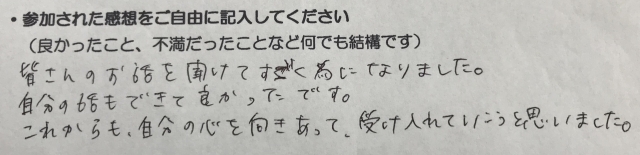 ・参加された感想をご自由に記入してください
（良かったこと、不満だったことなど何でも結構です）
皆さんのお話を聞けてすごく為になりました。
自分の話もできて良かったです。
これからも、自分の心を向きあって、受け入れていこうと思いました。